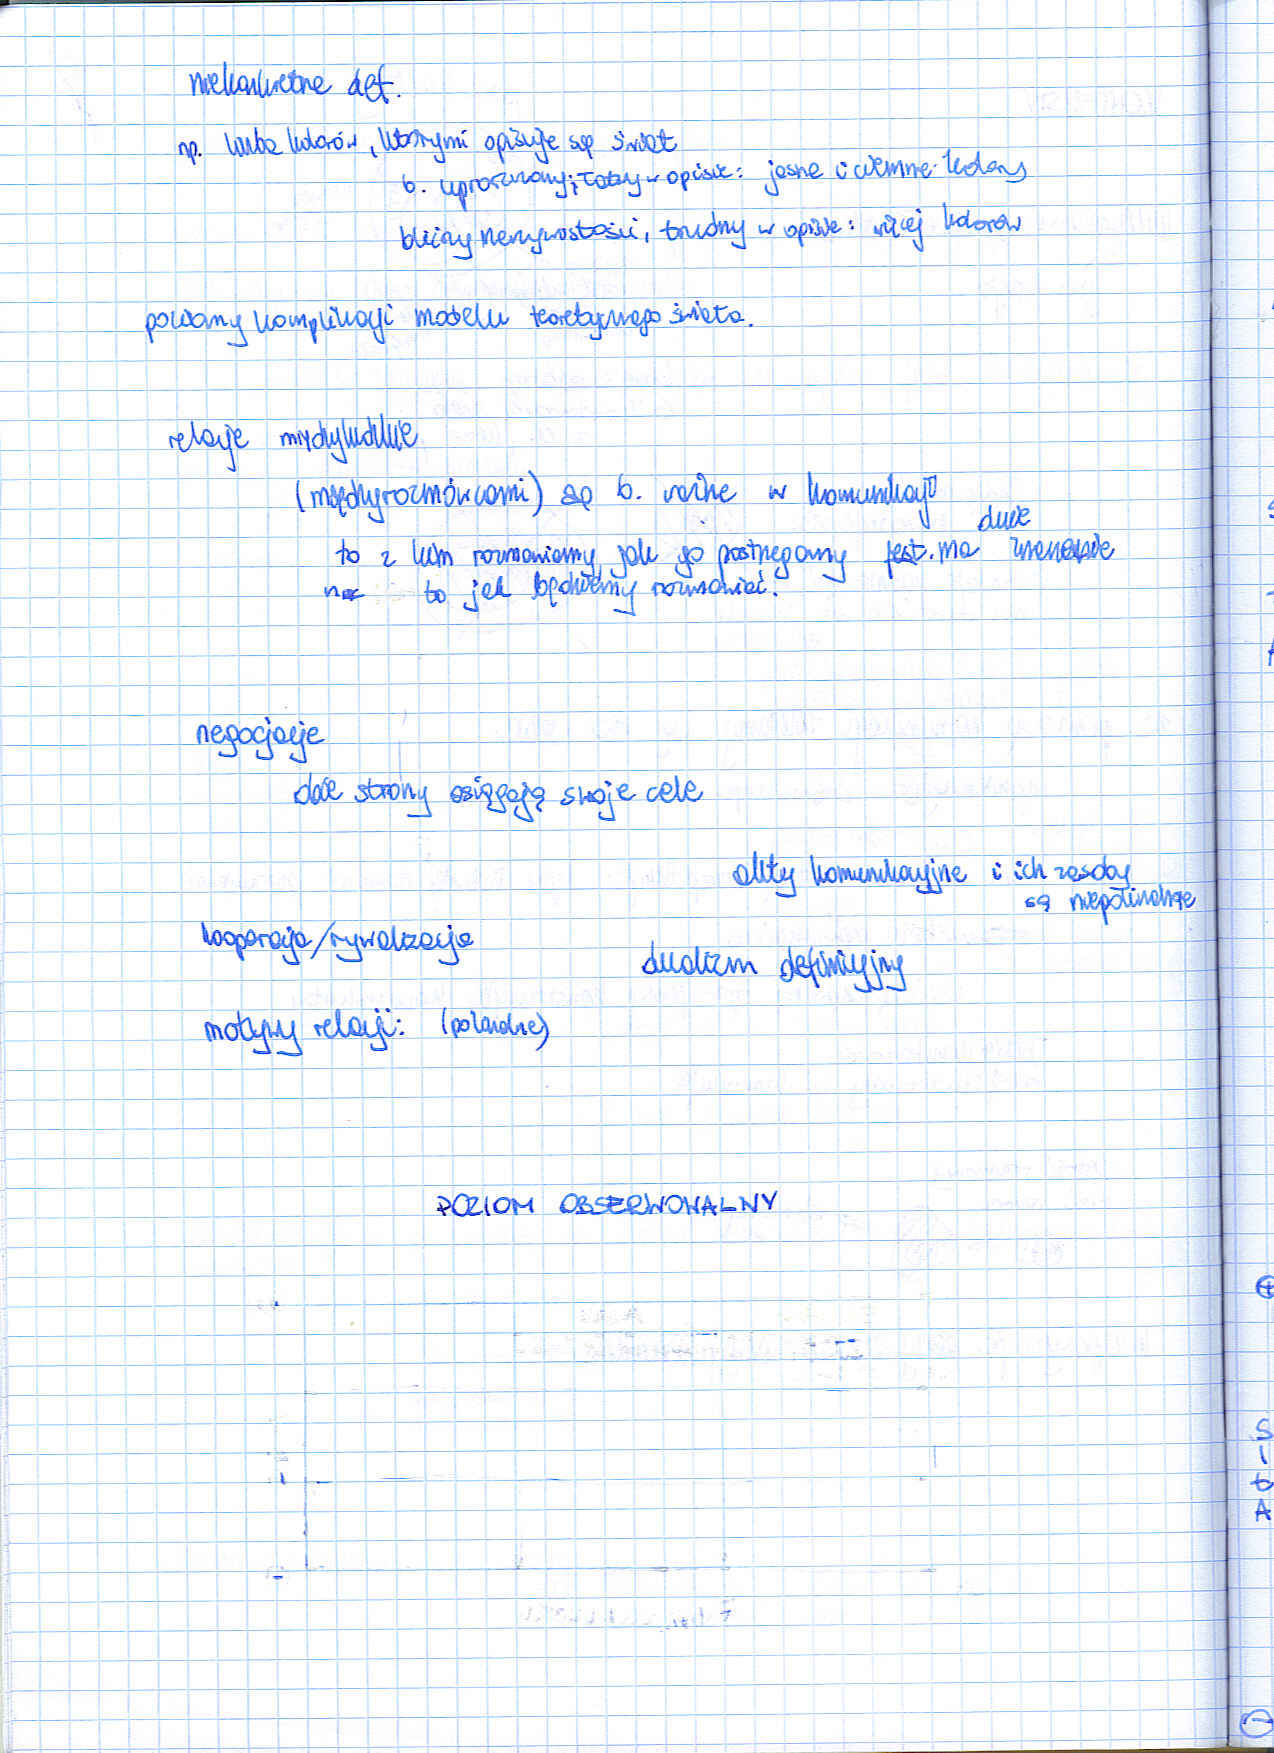 niekonkretne def.
np. liczba kolorów, którymi opisuje się świat
b. uproszczony; łatwy w opisie: jasne i ciemne kolory
bliższy rzeczywistości, trudny w opisie: więcej kolorów
poziomy komplikacji modelu teoretycznego świata.
relacje
(między rozmówcami) są b. ważne w komunikacji
duże
to z kim rozmawiamy, jak go postrzegamy jest. ma znaczenie
na to jak będziemy rozmawiać.
negocjacje
obie strony osiągają swoje cele
akty komunikacyjne i ich zasoby
są niepoliczalne
kooperacja/rywalizacja
dualizm definicyjny
motywy relacji: (polarne)
POZIOM OBSERWOWALNY
S
I
t
A